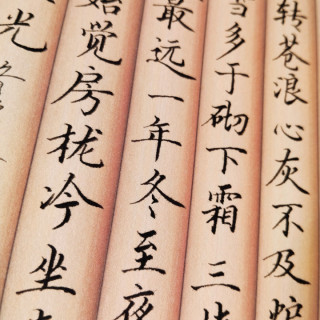 转苍浪心灰不及炉
雪多于砌下霜三
最远一年冬至夜
始觉房栊冷坐
光